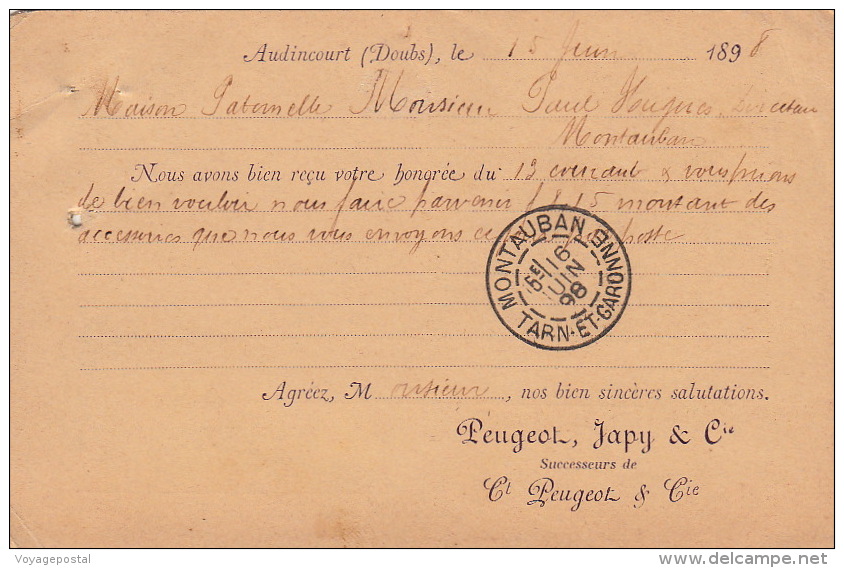 Audincourt (Doubs), le 15 Juin 1898
Maison Paternelle, Monsieur Paul Hugues, Directeur
Montauban
Nous avons bien reçu votre honorée du 13 courant & vous prions
de bien vouloir nous faire parvenir f 15 montant des
accessoires que nous vous envoyons ce poste
MONTAUBAN
5E
16
JUIN
98
TARN-ET-GARONNE
Agréez, Monsieur, nos bien sincères salutations.
Peugeot, Japy & Cie
Successeurs de
Ct Peugeot & Cie
Voyagepostal
delcampe.net